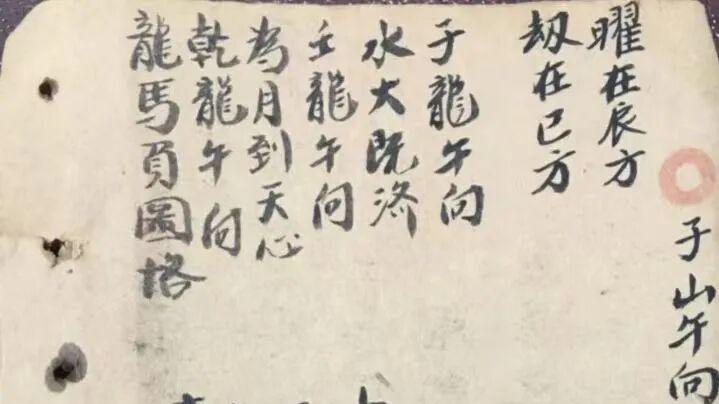 子山午向
曜在辰方
刼在巳方
子龍午向
水火既济
壬龍午向
为月到天心
乾龍午向
龍馬負圖格